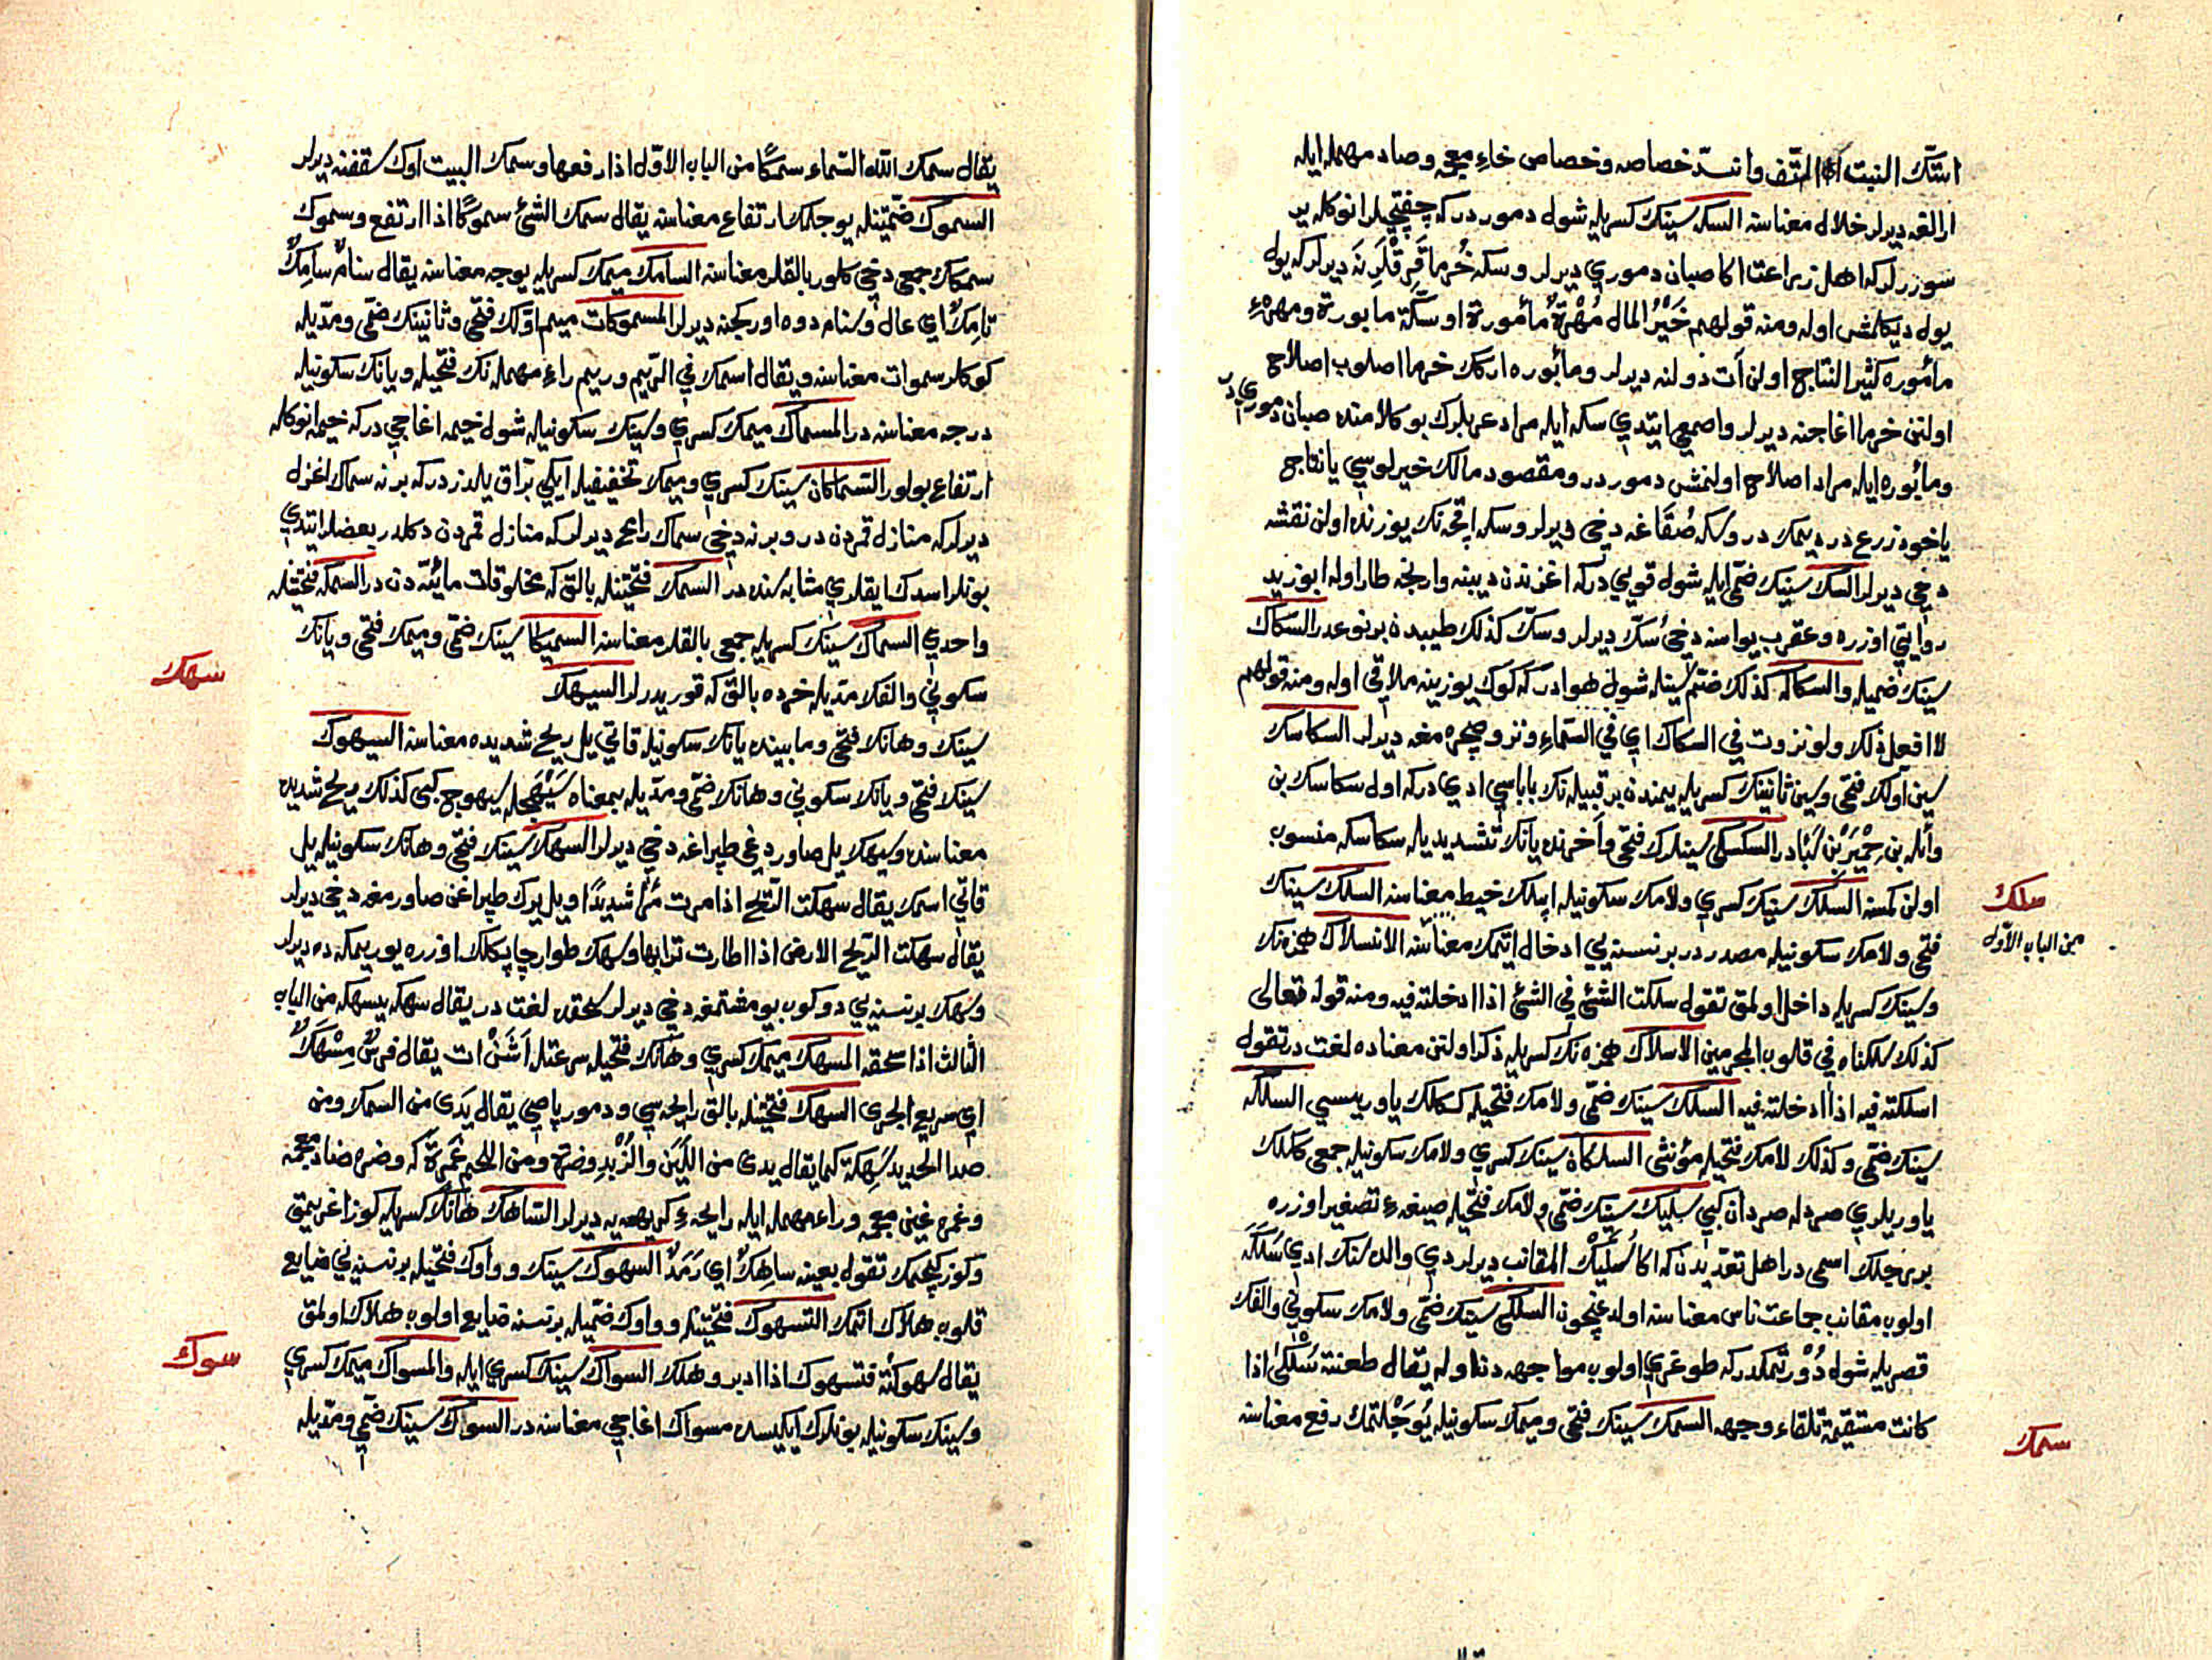 استك النبت التف وانسد خصاصه وخصاص خاء معجمه وصاد مهمله ايله
ارالقه ديرلر خلال معناسنه السكه سينك كسريله شول دموردركه چفتجيلر انوكله ير
سوررلركه اهل زراعت اكا صبان دموري ديرلر وسكه خرما قرقلرينه ديرلركه يول
يول ديكلمش اوله ومنه قولهم خَيْرُ المال مُهْرَةٌ مأمورة او سكّة مابورة ومهرهء
مأموره كثير النتاج اولن آت ذولنه ديرلر ومأبوره اركك خرما اصلوب اصلاح
اولنن خرما اغاجنه ديرلر واصمعي ايتدي سكه ايله مراد عربلرك بو كلامنده صبان دموري در
ومأبوره ايله مراد اصلاح اولنمش دموردر ومقصود مالك خيرلوسي يا نتاج
ياخود زرع در ديمك در وسكه صُقاغه دخي ديرلر وسكه اقچه نك يوزنده اولن نقشه
دخي ديرلر السك سينك ضمّي ايله شول قويي دركه اغزندن ديبنه وارنجه طار اوله ابو زيد
روايتي اوزره وعقرب يواسنه دخي سُكّ ديرلر وسك كذلك طيبدن بر نوعدر السكاك
سينك ضميله والسكاكه كذلك ضمّ سينله شول هوادركه كوك يوزينه ملاقي اوله ومنه قولهم
لا افعل ذلك ولو نزوت في السكاك اي في السماء ونزو صچره مغه ديرلر السكاسك
سين اولك فتحي وسين ثانينك كسريله يمندن بر قبيله نك باباسي ادي دركه اول سكاسك بن
وائله بن حِمْيَرْ بن سَبَا در السكسكي سينلرك فتحي وآخرنده يانك تشديديله سكاسكه منسوب
اولن كمسنه السلك سينك كسري ولامك سكونيله ايپلك خيط معناسنه السلك سينك
فتحي ولامك سكونيله مصدردر بر نسنه يي ادخال ايتمك معناسنه الانسلاك همزه نك
وسينك كسريله داخل اولمق تقول سلكت الشئ في الشئ اذا ادخلته فيه ومنه قوله تعالى
كذلك سلكناه في قلوب المجرمين الاسلاك همزه نك كسريله ذكر اولنن معناده لغت در تقول
اسلكته فيه اذا ادخلته فيه السلك سينك ضمّي ولامك فتحيله ككلك ياوريسي السلكه
سينك ضمّي وكذلك لامك فتحيله مؤنثي السلكان سينك كسري ولامك سكونيله جمعي ككلك
ياوريلري صرد له صردان كبي سليك سينك ضمّي ولامك فتحيله صيغهء تصغير اوزره
بر رجلك اسمي در اهل تعدّيدن كه اكا سُلَيْك المقانب ديرلردي والده سنك ادي سُلَكَه
اولوب مقانب جماعت ناس معناسنه اوله غيچون السلكى سينك ضمّي ولامك سكوني والفك
قصريله شول دُوْرتمكدركه طوغري اولوب مواجهه دن اوله يقال طعنة سُلْكَى اذا
كانت مستقيمة تلقاء وجهه السمك سينك فتحي وميمك سكونيله يوجلتمك رفع معناسنه
سلك
من الباب الاول
سمك
يقال سمك الله السّماء سمكًا من الباب الاوّل اذا رفعها وسمك البيت اوك سقفنه ديرلر
السموك ضمّتينله يوجلمك ارتفاع معناسنه يقال سمك الشئ سموكًا اذا ارتفع وسموك
سمكك جمعي دخي كلور بالقلر معناسنه السامك ميمك كسريله يوجه معناسنه يقال سنام سامِكٌ
تامِكٌ اي عال وسنام دوه اوركجنه ديرلر المسموكات ميم اوّلك فتحي وثانينك ضمّي ومدّيله
كوكلر سموات معناسنه ويقال اسمك في الرّيم وريم راء مهمله نك فتحيله ويانك سكونيله
درجه معناسنه در المسماك ميمك كسري وسينك سكونيله شول خيمه اغاجي دركه خيمه انوكله
ارتفاع بولور السّماكان سينك كسري وميمك تخفيفيله ايكي برّاق يلدزدركه برنه سماك اعزل
ديرلركه منازل قمردن در وبرنه دخي سماك رامح ديرلركه منازل قمردن دكلدر بعضلر ايتدي
بونلر اسدك ايقلري مثابه سنده در السمك فتحتينله بالق كه مخلوقات مائيّه دن در السمكه فتحتينله
واحدي السماك سينك كسريله جمعي بالقلر معناسنه السميكا سينك ضمّي وميمك فتحي ويانك
سكوني والفك مدّيله خرده بالق كه قوريدرلر السيهك
سينك وهانك فتحي ومابينده يانك سكونيله قاتي يل ريح شديده معناسنه السيهوك
سينك فتحي ويانك سكوني وهانك ضمّي ومدّيله بمعناه سَيْهَج له سيهوج كبي كذلك ريح شديده
معناسنده وسيهك يل صاوردغي طپراغه دخي ديرلر السهك سينك فتحي وهانك سكونيله يل
قاتي اسمك يقال سهكت الرّيح اذا مرت مرًّا شديدًا ويل يرك طپراغن صاورمغه دخي ديرلر
يقال سهكت الرّيح الارض اذا اطارت ترابها وسهك طوار چاپكلك اوزره يوريمكه ده ديرلر
وسهك بر نسنه يي دوكوب يومشتمغه دخي ديرلر سحقده لغت در يقال سهكه يسهكه من الباب
الثالث اذا سحقه المسهك ميمك كسري وهانك فتحيله سرعتله اَشَنْ ات يقال فرسٌ مِسْهَكٌ
اي سريع الجرى السهك فتحتينله بالق رايحه سي ودمور پاصي يقال يَدى من السمك ومن
صدا الحديد سَهِكَة كما يقال يدى من اللَّبَن والزُّبْدِ وضرة ومن اللحم غَمِرَة كه وضره ضاد معجمه
وغمره غين معجمه وراء مهمله ايله رايحهء كريهه يه ديرلر السّاهك هانك كسريله كوز اغريمق
وكوز كيجمك تقول بعينه ساهِكٌ اي رَمَدٌ السهوك سينك وواوك فتحيله بر نسنه يي ضايع
قلوب هلاك اتمك التسهوك فتحتينله وواوك ضمّيله بر نسنه ضايع اولوب هلاك اولمق
يقال سهوكته فتسهوك اذا ادبر وهلك السواك سينك كسري ايله والمسواك ميمك كسري
وسينك سكونيله بونلرك ايكيسده مسواك اغاجي معناسنه در السواك سينك ضمّي ومدّيله
سهك
سوك